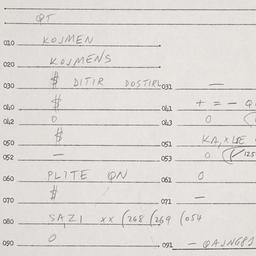 QT
010 KOJMEN
020 KOJMENS
030 $ DITIR DOSTIRL 031 —
040 $ 041 + = — Q
042 0 043 0
050 $ 051 KA,XLSE
052 — 053 0 (✓125
060 PLITE QN 061 0
070 $ 071 —
080 SAZI XX (268 (269 (054
090 0 091 — QAJNG81